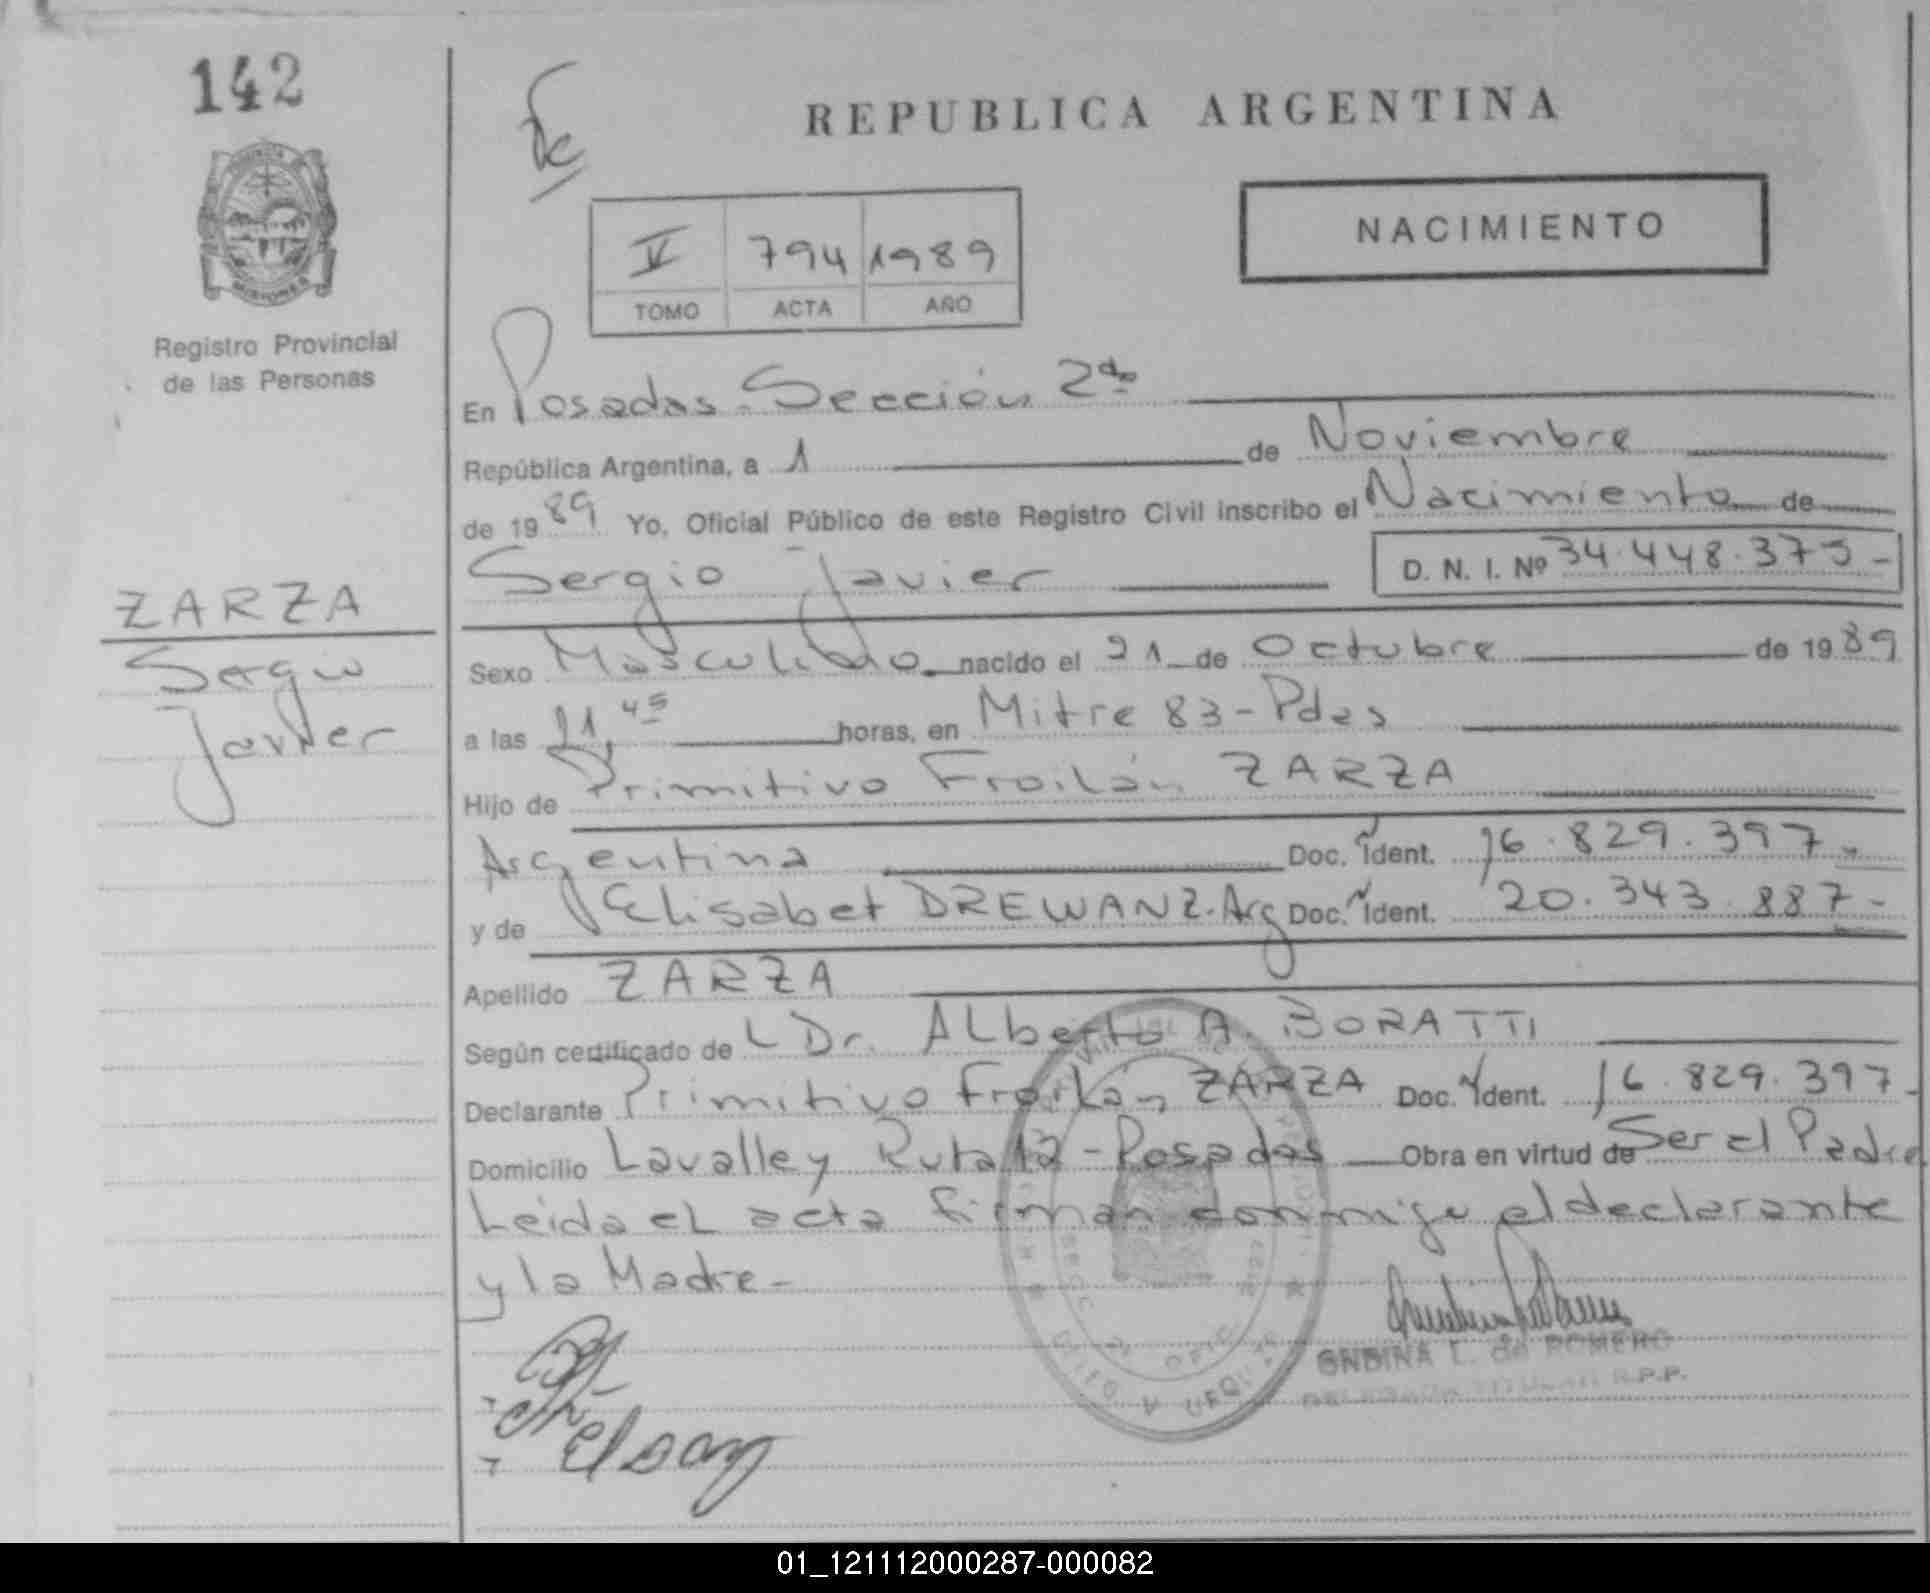 142
REPUBLICA ARGENTINA
NACIMIENTO
V 794 1989
TOMO ACTA AÑO
Registro Provincial
de las Personas
MISIONES
En Posadas - Sección 2da
República Argentina, a 1 de Noviembre
de 1989 Yo, Oficial Público de este Registro Civil inscribo el Nacimiento de
Sergio Javier D. N. I. Nº 34.448.375-
ZARZA
Sergio
Javier
Sexo Masculino nacido el 21 de Octubre de 1989
a las 21,45 horas, en Mitre 83 - Pdas
Hijo de Primitivo Froilán ZARZA
Argentina Doc. Ident. 16.829.397-
y de Elisabet DREWANZ. Arg Doc. Ident. 20.343.887-
Apellido ZARZA
Según certificado de L Dr. ALberto A. BORATTI
Declarante Primitivo Froilán ZARZA Doc. Ident. 16.829.397-
Domicilio Lavalle y Ruta 12 - Posadas Obra en virtud de Ser el Padre
Leída eL acta firman conmigo el declarante
y la Madre-
ONDINA L. de ROMERO
DELEGADA TITULAR R.P.P.
01_121112000287-000082